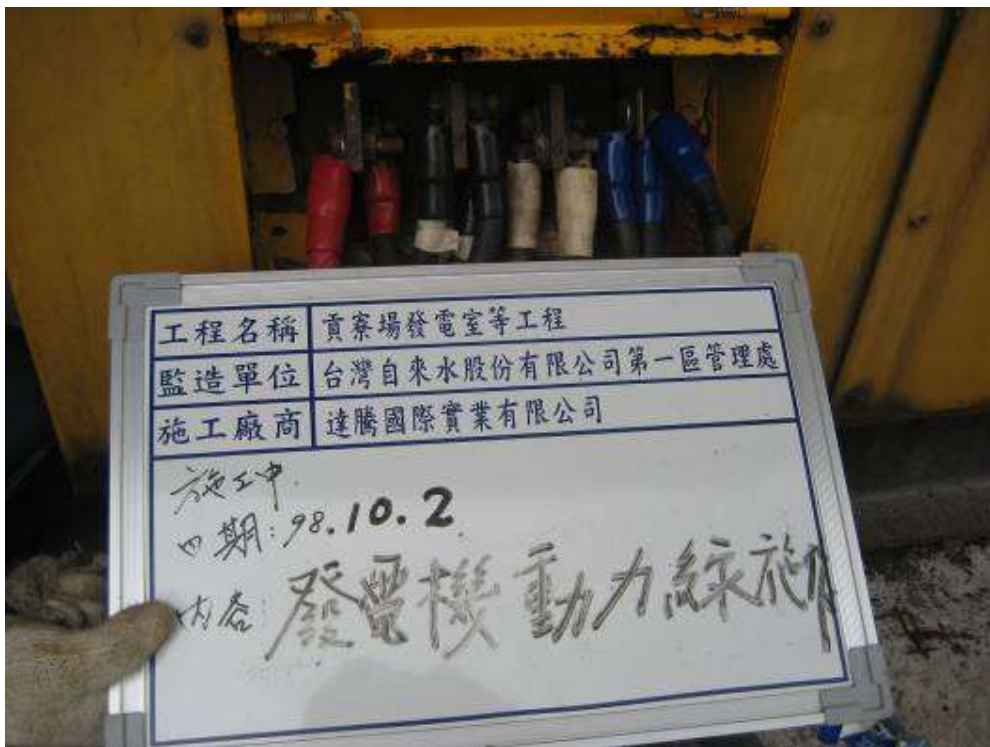 工程名稱 貢寮場發電室等工程
監造單位 台灣自來水股份有限公司第一區管理處
施工廠商 達騰國際實業有限公司
施工中
日期:98.10.2
內容:發電機動力線施作